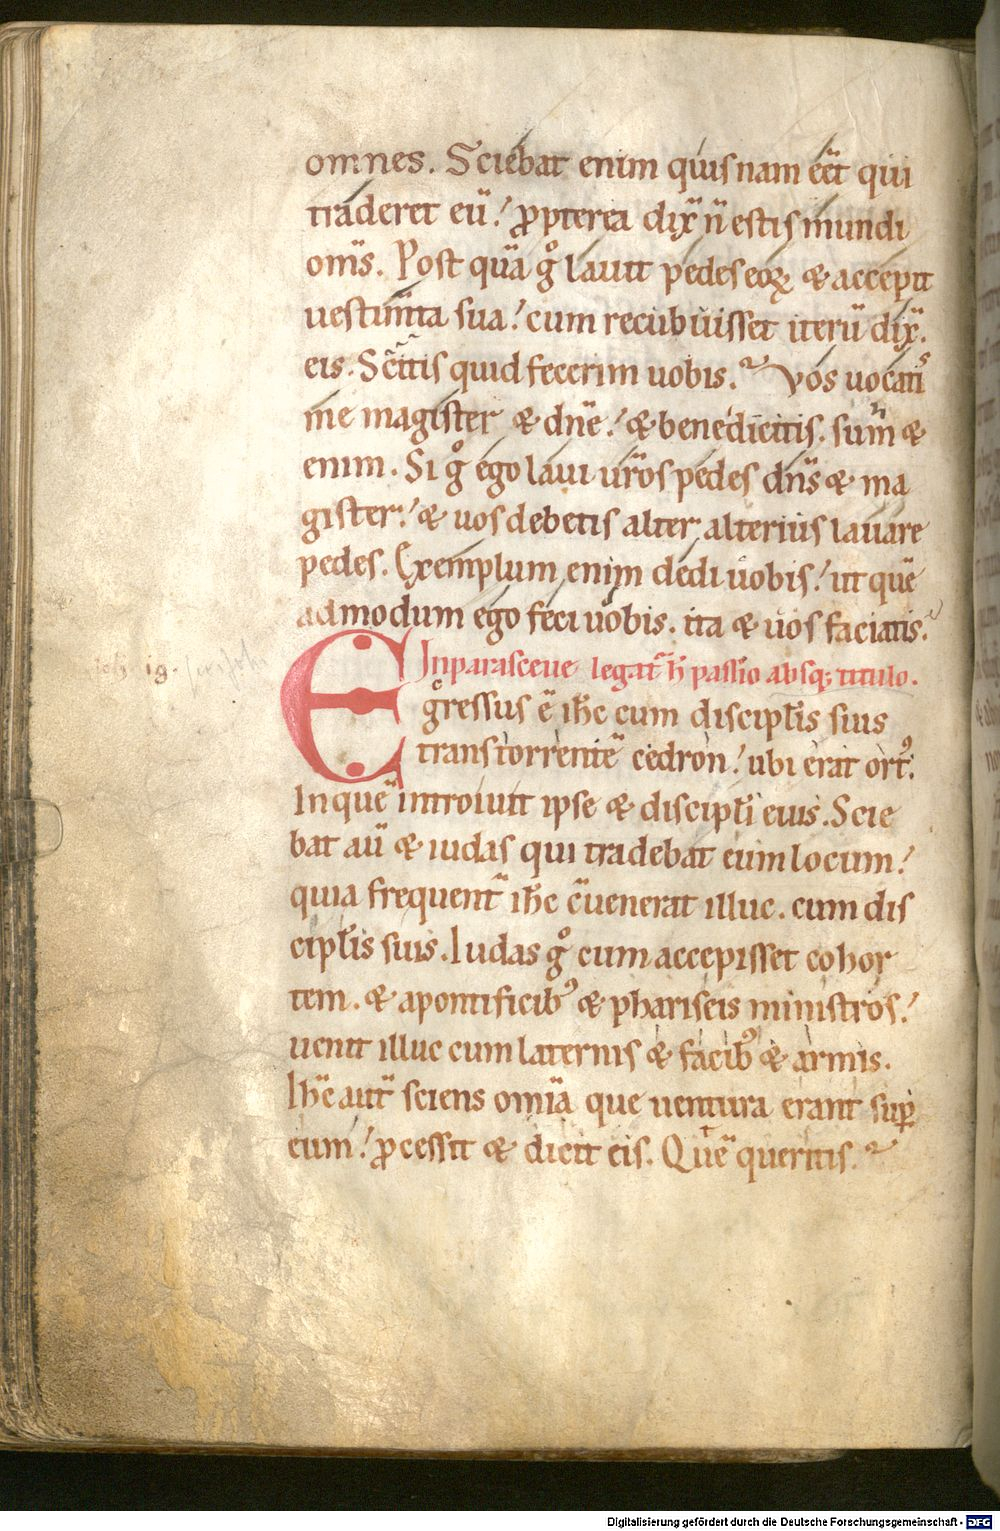 omnes. Sciebat enim quisnam eēt qui
traderet eū! ꝓpterea dix̄ n̄ estis mundi
om̄s. Post quā gͦ lauit pedes eoꝝ & accepit
uestim̄ta sua! cum recubuisset iterū dix̄.
eis. Scītis quid fecerim uobis. Vos uocatis
me magister & dn̄e! & benedicitis. sum &
enim. Si gͦ ego laui ur̄os pedes dn̄s & ma
gister! & uos debetis alter alterius lauare
pedes. Exemplum enim dedi uobis! ut quē
admodum ego feci uobis. ita & uos faciatis.
In parasceue legat᷑ h̄ passio absq; titulo.
Egressus ē ih̄c cum discipl̄is suis
trans torrentē cedron! ubi erat ortꝰ.
In quē introiuit ipse & discipl̄i eius. Scie
bat aū & iudas qui tradebat eum locum!
quia frequent᷑ ih̄c c̄uenerat illuc. cum dis
cipl̄is suis. Iudas gͦ cum accepisset cohor
tem. & a pontificibꝰ & phariseis ministros!
uenit illuc cum laternis & facibꝰ & armis.
Ih̄c aut̄ sciens omīa que uentura erant suꝑ
eum! ꝓcessit & dicit eis. Quē queritis.
Digitalisierung gefördert durch die Deutsche Forschungsgemeinschaft - DFG